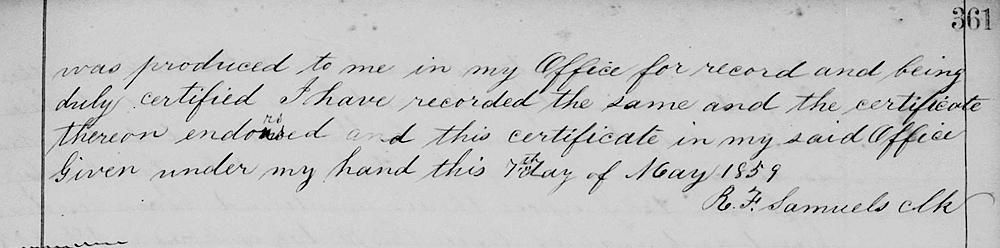 361
was produced to me in my Office for record and being
duly certified I have recorded the same and the certificate
thereon endorsed and this certificate in my said Office
Given under my hand this 7th day of May 1859
R. F. Samuels Clk